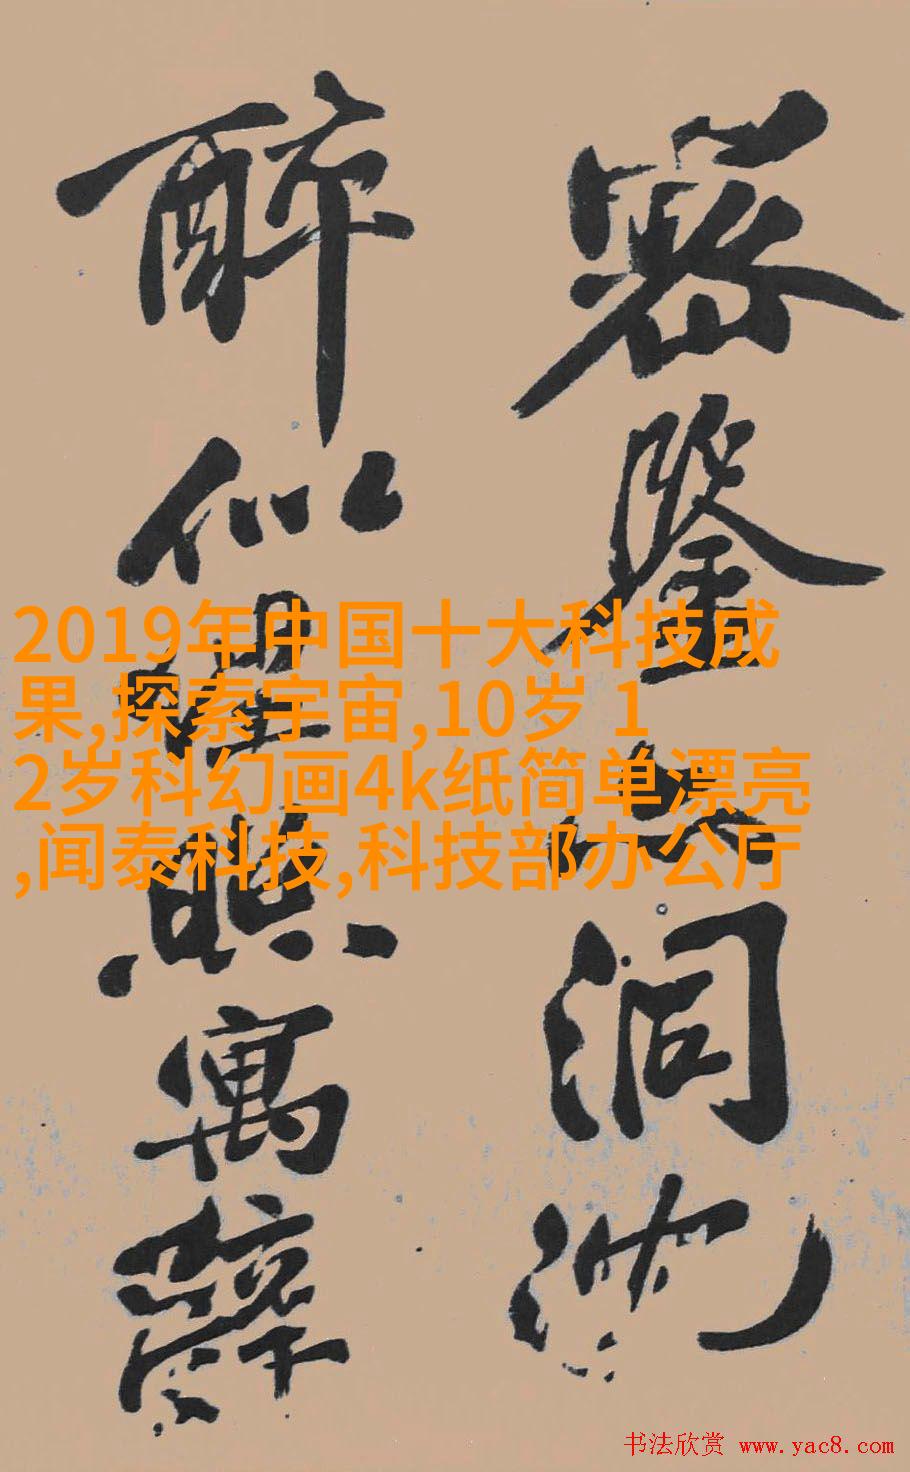 密鑒亦洞沈
醉似埋照寓辭
2019年中国十大科技成
果,探索宇宙,10岁 1
2岁科幻画4k纸简单漂亮
,闻泰科技,科技部办公厅
书法欣赏 www.yac8.com